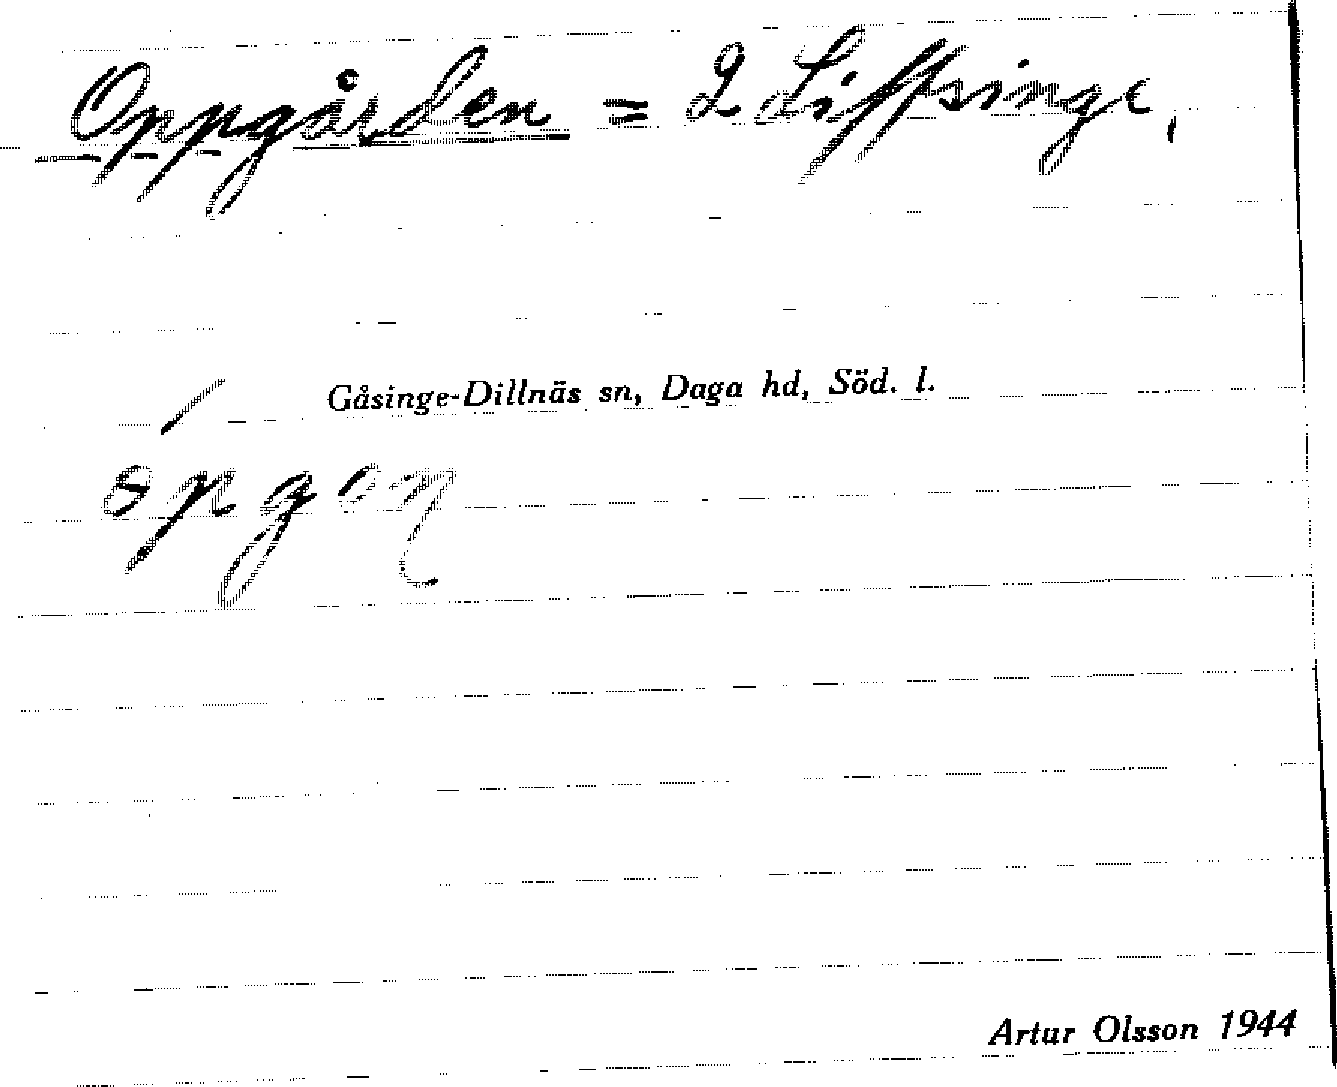 Oppgården = 2 Liffsinge,
Gåsinge-Dillnäs sn, Daga hd, Söd. l.
Artur Olsson 1944